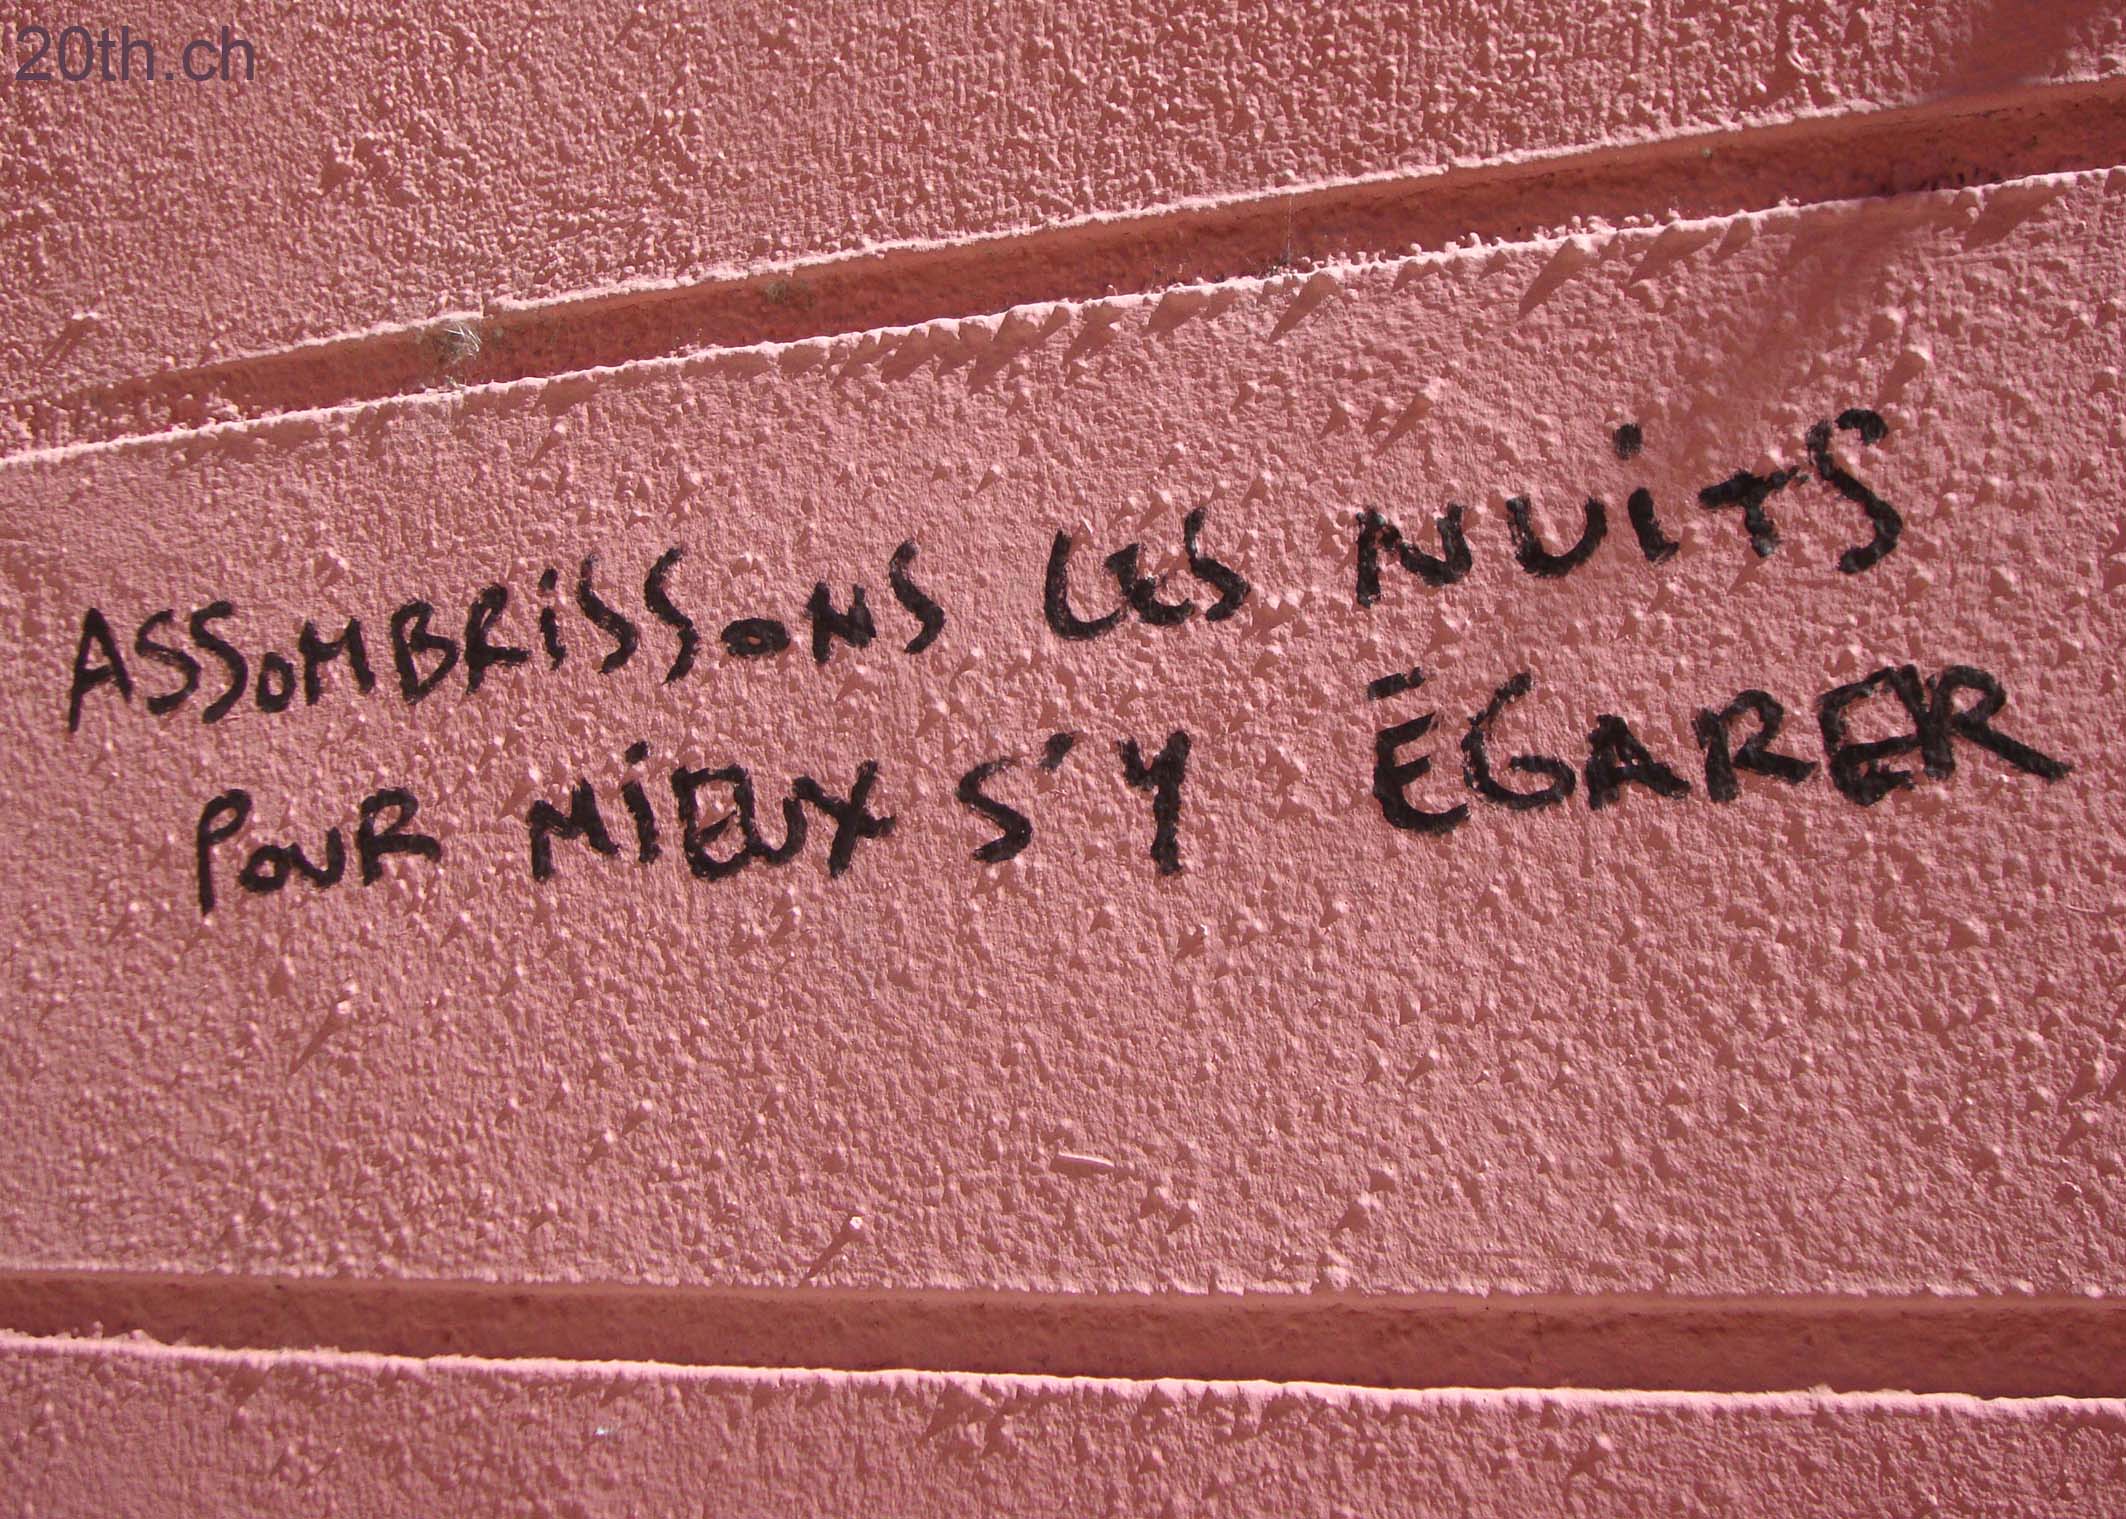 20th.ch
ASSOMBRiSSONS LES NUiTS
POUR MiEUX S'Y ÉGARER